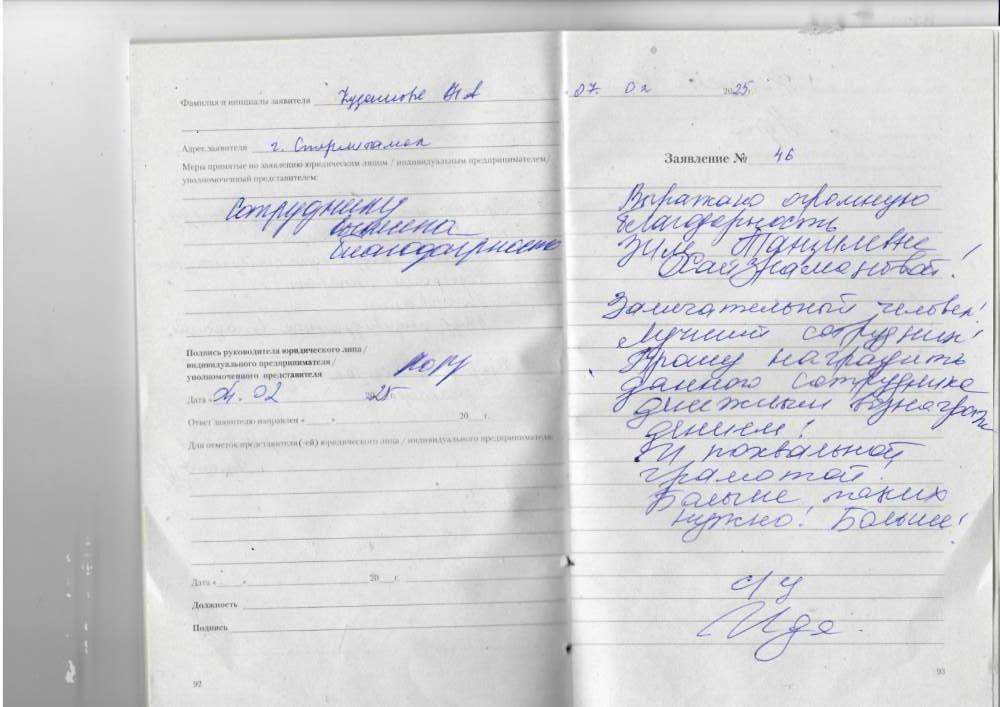 Фамилия и инициалы заявителя
Адрес заявителя г. Стерлитамак
Меры принятые по заявлению юридическим лицом / индивидуальным предпринимателем/
уполномоченный представителем:
Сотруднику
вынесена
благодарность
Подпись руководителя юридического лица /
индивидуального предпринимателя /
уполномоченного представителя
Дата « 02 2025
Ответ заявителю направлен «____» 20___г.
Для отметок представителя(-ей) юридического лица / индивидуального предпринимателя:
Дата «____» 20___г.
Должность
Подпись
92
07. 02 2025г.
Заявление № 46
Выражаю огромную
благодарность
Зиле Танзилевне
!
Замечательный человек!
Лучший сотрудник!
Прошу наградить
данного сотрудника
денежным вознаграж
дением!
И похвальной
грамотой.
Больше таких
нужно! Больше!
с/у
93